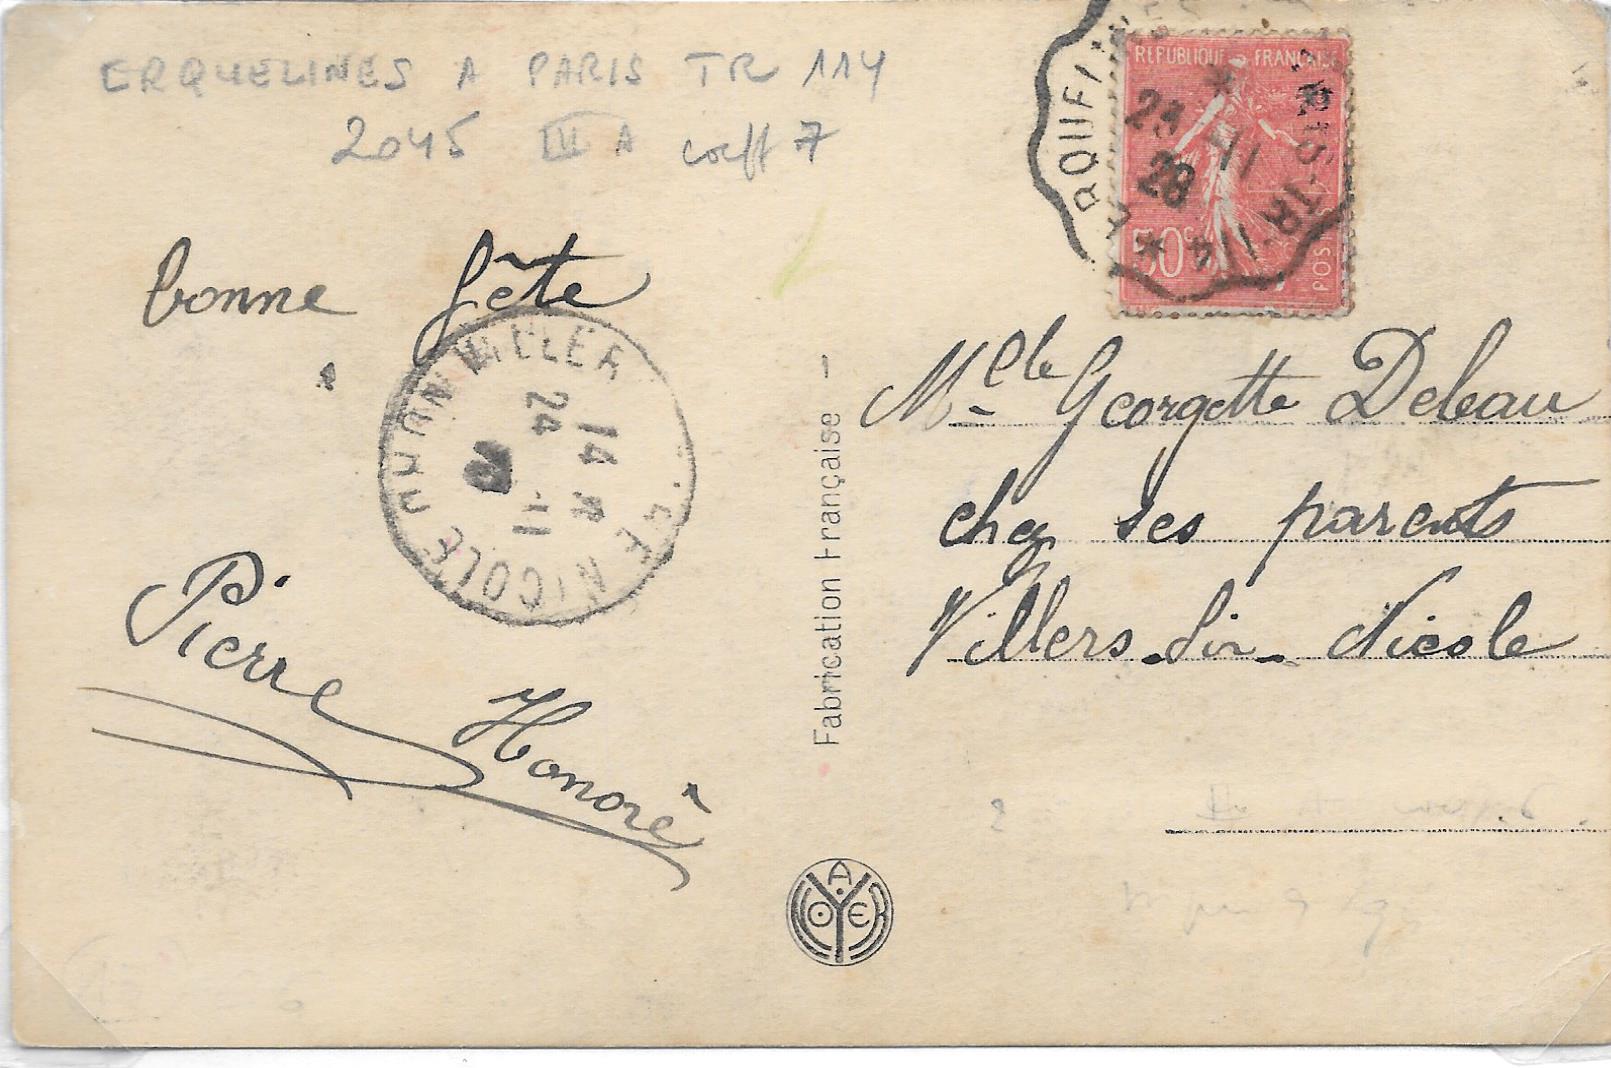 ERQUELINES A PARIS TR 114
2045 III A coeff 7
bonne fête
Pierre
Honoré
Fabrication Française
A. YOER
RÉPUBLIQUE FRANÇAISE
50c
POSTES
ERQUELINES A PARIS-TR. 114
* 23 -11 28 *
NICOLE
14 *
24 -11
Mlle Georgette Debeau
chez ses parents
Villers-Sir-Nicole